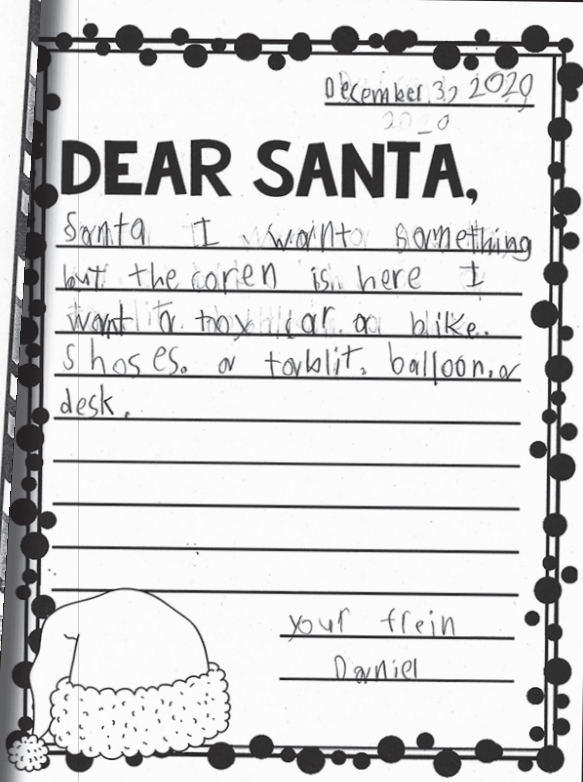 December 3, 2020
20_0
DEAR SANTA,
Santa I want something
but the coren is here I
want a toy car. a bike.
Shoses. a tablit. balloon. a
desk.
your frein
Daniel